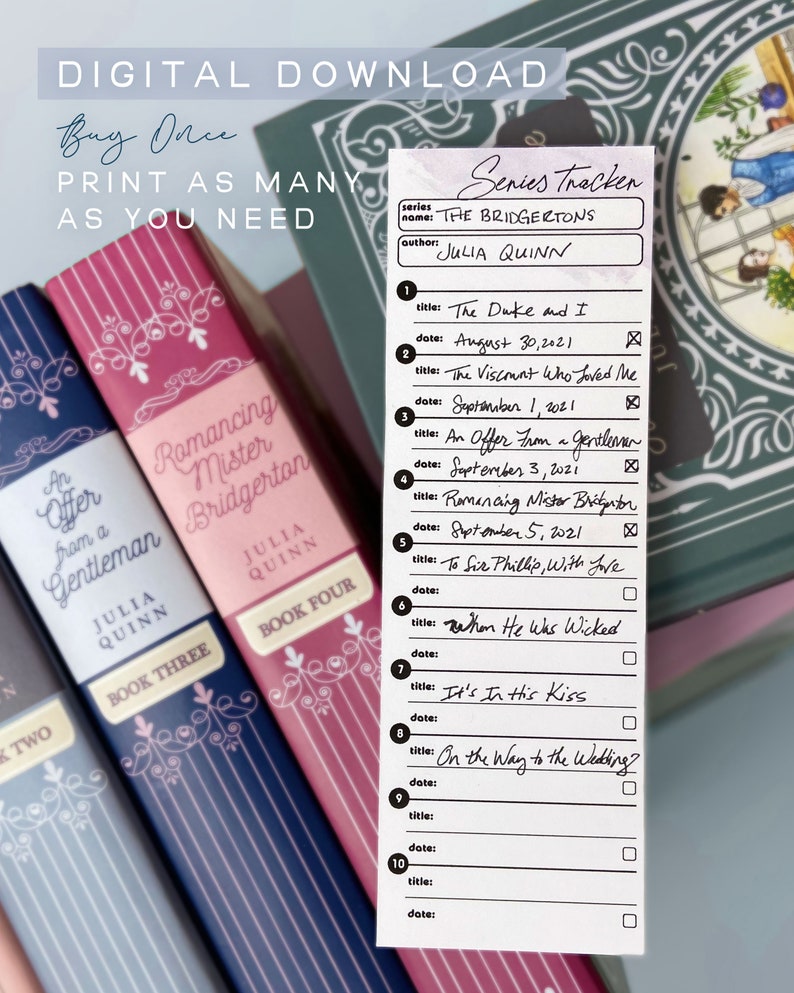 DIGITAL DOWNLOAD
Buy Once
PRINT AS MANY
AS YOU NEED
Series Tracker
series name: THE BRIDGERTONS
author: JULIA QUINN
1
title: The Duke and I
date: August 30, 2021
2
title: The Viscount Who Loved Me
date: September 1, 2021
3
title: An Offer From a Gentleman
date: September 3, 2021
4
title: Romancing Mister Bridgerton
date: September 5, 2021
5
title: To Sir Phillip, With Love
date:
6
title: When He Was Wicked
date:
7
title: It's In His Kiss
date:
8
title: On the Way to the Wedding?
date:
9
title:
date:
10
title:
date:
Romancing
Mister
Bridgerton
JULIA
QUINN
BOOK FOUR
An
Offer
from a
Gentleman
JULIA
QUINN
BOOK THREE
TWO